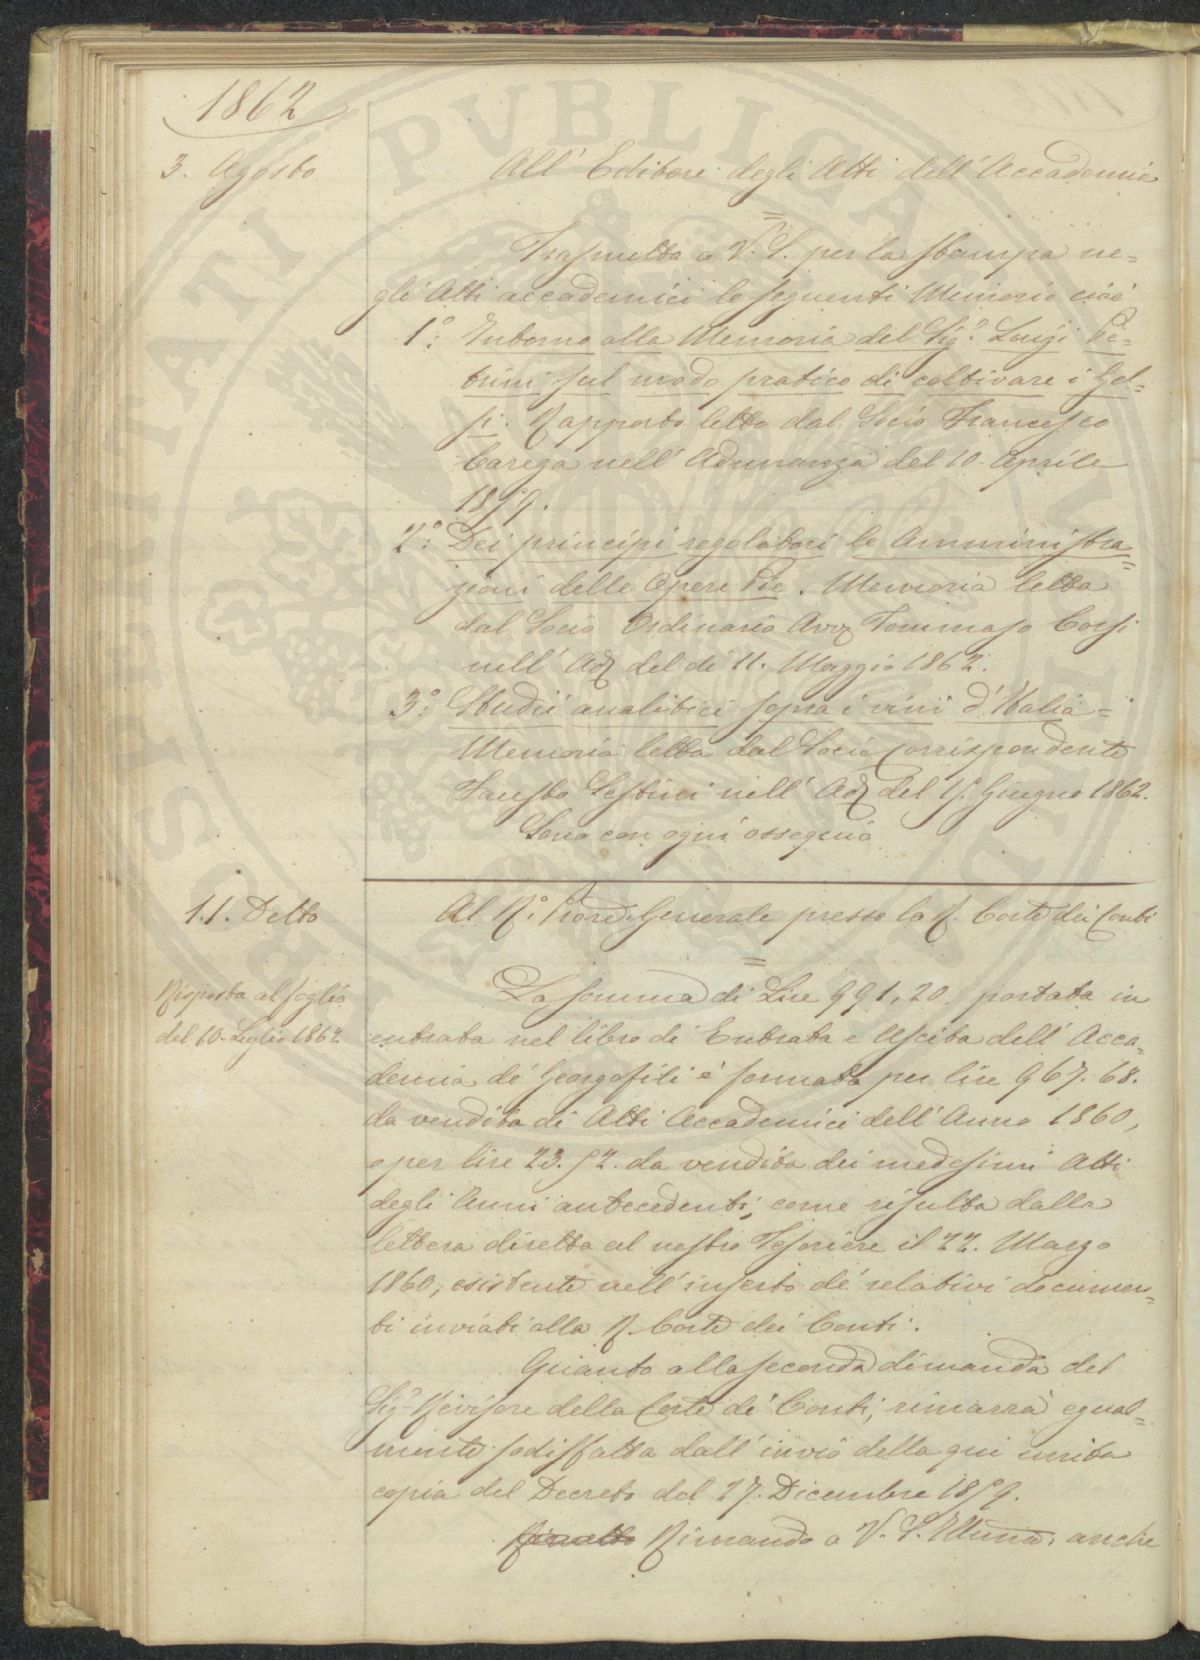 1862
3. Agosto
All' Editore degli Atti dell' Accademia
=
Trasmetto a V. S. per la stampa ne=
gli Atti accademici le seguenti Memorie cioè
1.° Intorno alla Memoria del Sig.r Luigi Pe=
trini sul modo pratico di coltivare i Gel=
si. Rapporto letto dal Socio Francesco
Carega nell' Adunanza del 10 Aprile
1859.
2.° Dei principi regolatori le Amministra=
zioni delle Opere Pie. Memoria letta
dal Socio Ordinario Avv. Tommaso Corsi
nell' Ad.z del dì 11. Maggio 1862.
3.° Studii analitici sopra i vini d'Italia=
Memoria letta dal Socio Corrispondente
Fausto Sestini nell' Ad.z del 15. Giugno 1862.
Sono con ogni ossequio
11. Detto
Al R.° Proc.re Generale presso la R. Corte dei Conti
=
Risposta al foglio
del 10 Luglio 1862
La somma di Lire 991,20. portata in
entrata nel libro di Entrata e Uscita dell' Acca=
demia de' Georgofili è formata per lire 967.68.
da vendita di Atti Accademici dell' Anno 1860,
e per lire 23.52. da vendita dei medesimi Atti
degli Anni antecedenti, come risulta dalla
lettera diretta al nostro Tesoriere il 22. Marzo
1860, esistente nell' inserto de' relativi documen=
ti inviati alla R. Corte dei Conti.
Quanto alla seconda dimanda del
Sig.r Revisore della Corte de' Conti, rimarrà egual=
mente sodisfatta dall' invio della qui unita
copia del Decreto del 27. Dicembre 1859.
Rimando a V. S. Ill.ma anche
PVBLICAE
PROSPERITATI